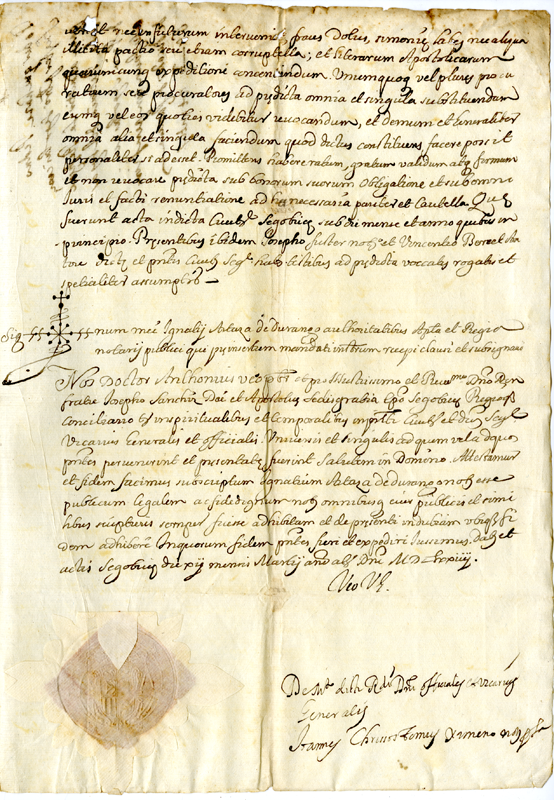 nec in futurum intervenit fraus Dolus, simonię labes nec aliqua
illicita pactio seu etiam corruptella; et literarum Apostolicarum
quarumcunq expeditioni consentiendum. Unumquoq vel plures procu
ratorem seu procuratores ad prędicta omnia et singula substituendum
eumq vel eos quoties videbitur revocandum, et Demum et generaliter
omnia alia et singula faciendum quod dictus constituens facere posset
personaliter si adesset. Promittens habere ratum, gratum validum atq firmum
et non revocare prędicta sub bonorum suorum obligatione et sub omni
Iuris et facti renuntiatione ad hęc necessaria pariter et Cauthella Quę
fuerunt acta in dicta Civitᵗᵉ Segobicę sub die mense et anno quibus in
principio. Pręsentibus ibidem Iosepho fuster notᵒ et Vincentio
dictę et pntis Civitᵗˢ Segᵉ testibus ad prędicta vocatis rogatis et
specialiter assumptis –
Sig ſſ ſſ num mei Ignatij Ataza de Durango authoritatibus Aplca et Regia
notarij publici qui pręinsertum mandati instrum recepi clausi et subsignavi
Nos Doctor Anthonius veo pbr et pro Illustrissimo et Revᵐᵒ Dno Don
fratre Iosepho Sanchis Dei et Apostolicę sedis gratia Epo Segobicę Regioq
Conciliario in spiritualibus et temporalibus in pnti Civitᵗᵉ et dioc Segᵉ
Vicarius Generalis et officialis. Universis et singulis ad quem vel ad quos
pntes pervenerint et presentatę fuerint Salutem in Domino. Attestamur
et fidem facimus suscriptum Ignatium Ataza de durango notᵐ esse
publicum legalem ac fidedignum notᵐ omnibusq eius publicis et simi
libus scripturis semper fuisse adhibitam et de presenti indubiam ubiq fi
dem adhiberi Inquorum fidem pntes fieri et expediri Iussimus. Datᵗ et
actis Segobicę die xij mensis Martij anno a Natᵉ Dni M DC Lxxiiij.
Veo Vᵗ. Gˢ.
De Mᵗᵒ dicti Rdi Dni officialis et Vicarij
Generalis
Ioannes Christofomus Ximeno notˢ